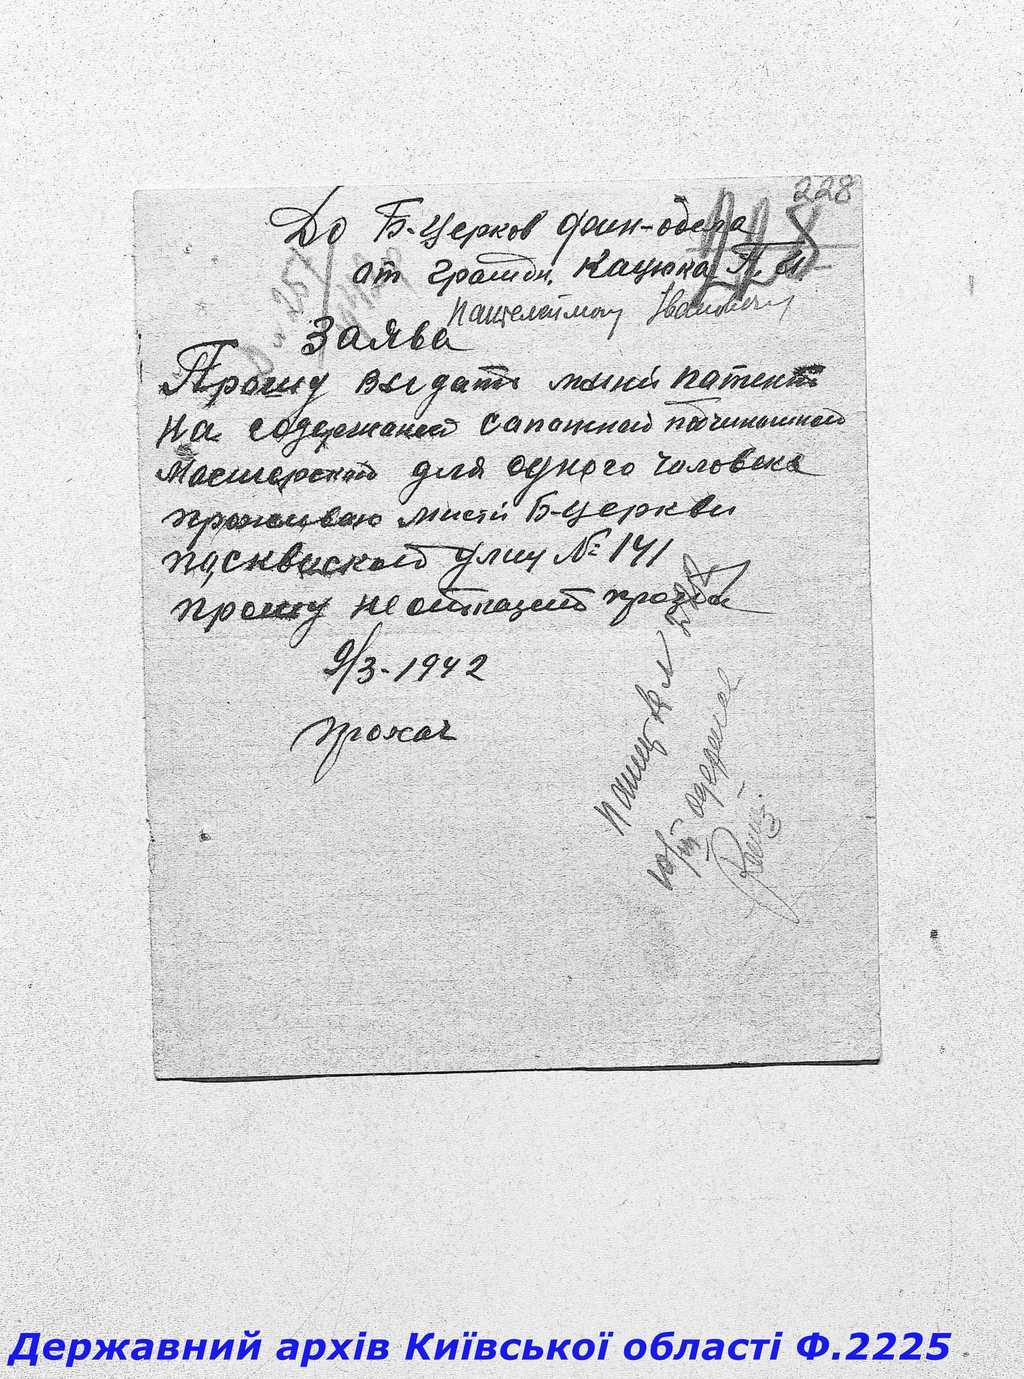 228
До Б-Церков фин-одела
от грамдн. Кацюка П. И.
Пантелеймон Іванович
Заява
Прошу выдать мині патент
на содержаней сапожной починошной
Мастерской для одного чоловека
проживаю мисті Б-Церкви
по улиц № 141
прошу не откащет прозби
9/3-1942
прохач
228
10/III одержав
Державний архів Київської області Ф.2225